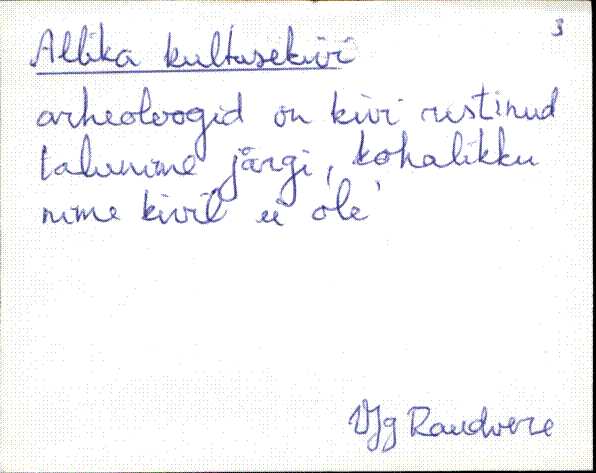 3
Allika kultusekivi
arheoloogid on kivi ristinud
talunime järgi, kohalikku
nime kivil ei ole
VJg Raudvere